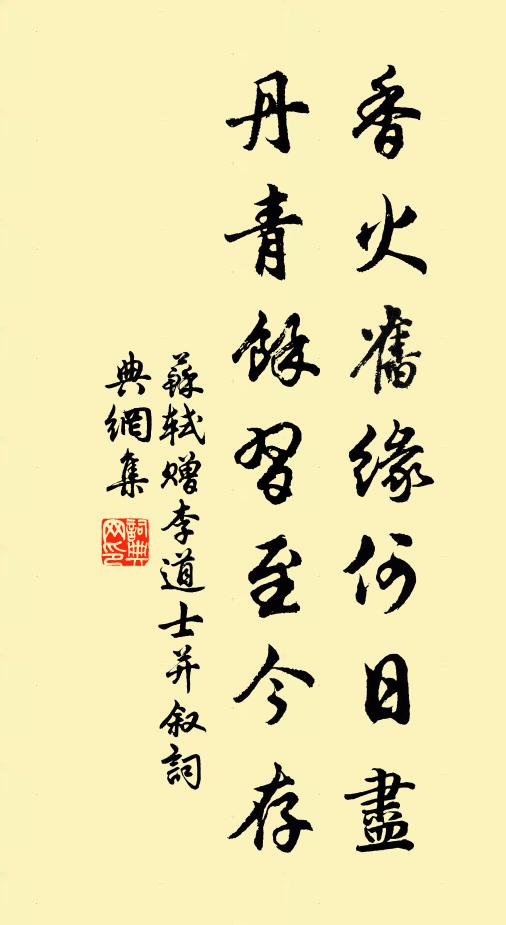 香火舊緣何日盡
丹青餘習至今存
蘇軾贈李道士并叙詞
典網集
詞典網印